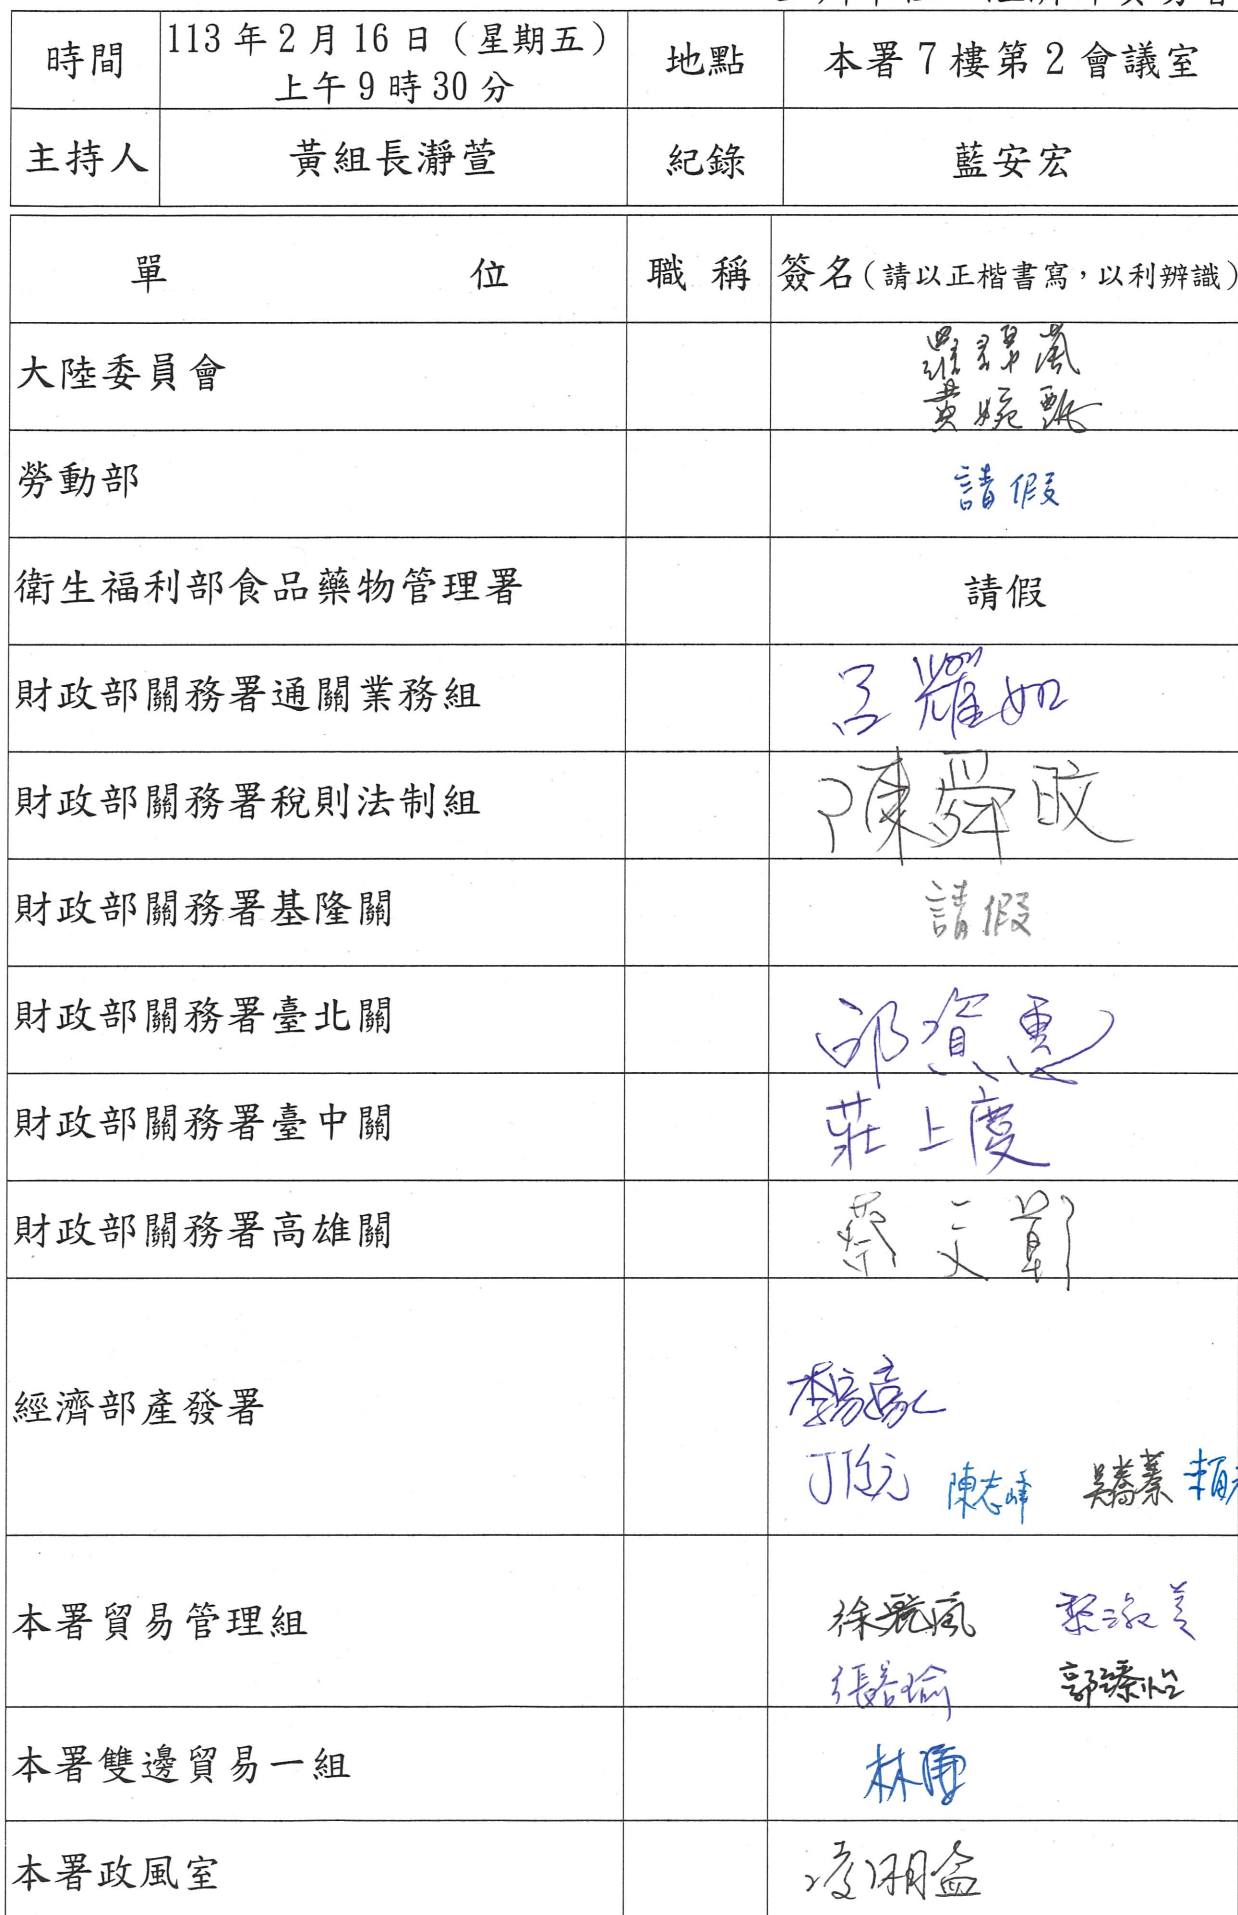 時間 113年2月16日（星期五） 上午9時30分 地點 本署7樓第2會議室
主持人 黃組長瀞萱 紀錄 藍安宏
單位 職稱 簽名（請以正楷書寫，以利辨識）
大陸委員會
黃婉甄
勞動部 請假
衛生福利部食品藥物管理署 請假
財政部關務署通關業務組 呂耀如
財政部關務署稅則法制組 陳舜旼
財政部關務署基隆關 請假
財政部關務署臺北關 邱資惠
財政部關務署臺中關 莊上慶
財政部關務署高雄關 蔡文彰
經濟部產發署
陳志峰
本署貿易管理組 徐 黎淑美
張若瑜 郭臻怡
本署雙邊貿易一組 林
本署政風室 凌明